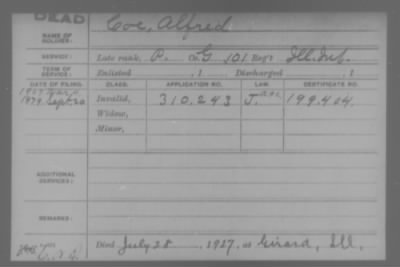 DEAD
NAME OF SOLDIER: Coe, Alfred
SERVICE: Late rank, P. Co. G 101 Reg't Ill. Inf.
TERM OF SERVICE: Enlisted , 1 Discharged , 1
DATE OF FILING. CLASS. APPLICATION NO. LAW. CERTIFICATE NO.
1879 Sept 20 Invalid, 310.243 J. 199.404
Widow,
Minor,
ADDITIONAL SERVICES:
REMARKS:
Died July 28, 1927, at Girard, Ill.